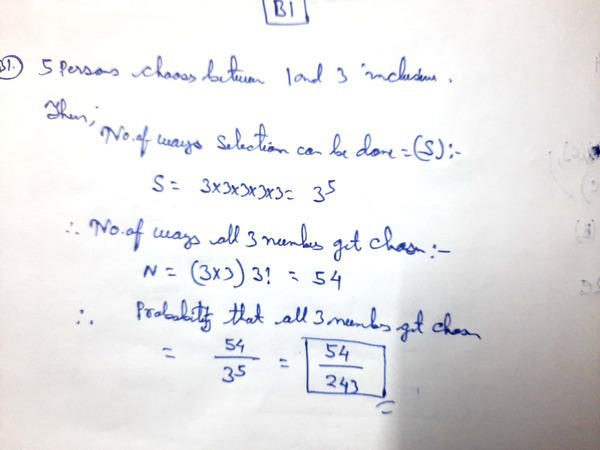 B1
B1. 5 Persons chooses between 1 and 3 inclusive.
Then,
No. of ways selection can be done = (S) :-
S = 3×3×3×3×3 = 3^5
∴ No. of ways all 3 numbers get chosen :-
N = (3×3) 3! = 54
∴ Probability that all 3 numbers get chosen
= 54/3^5 = 54/243